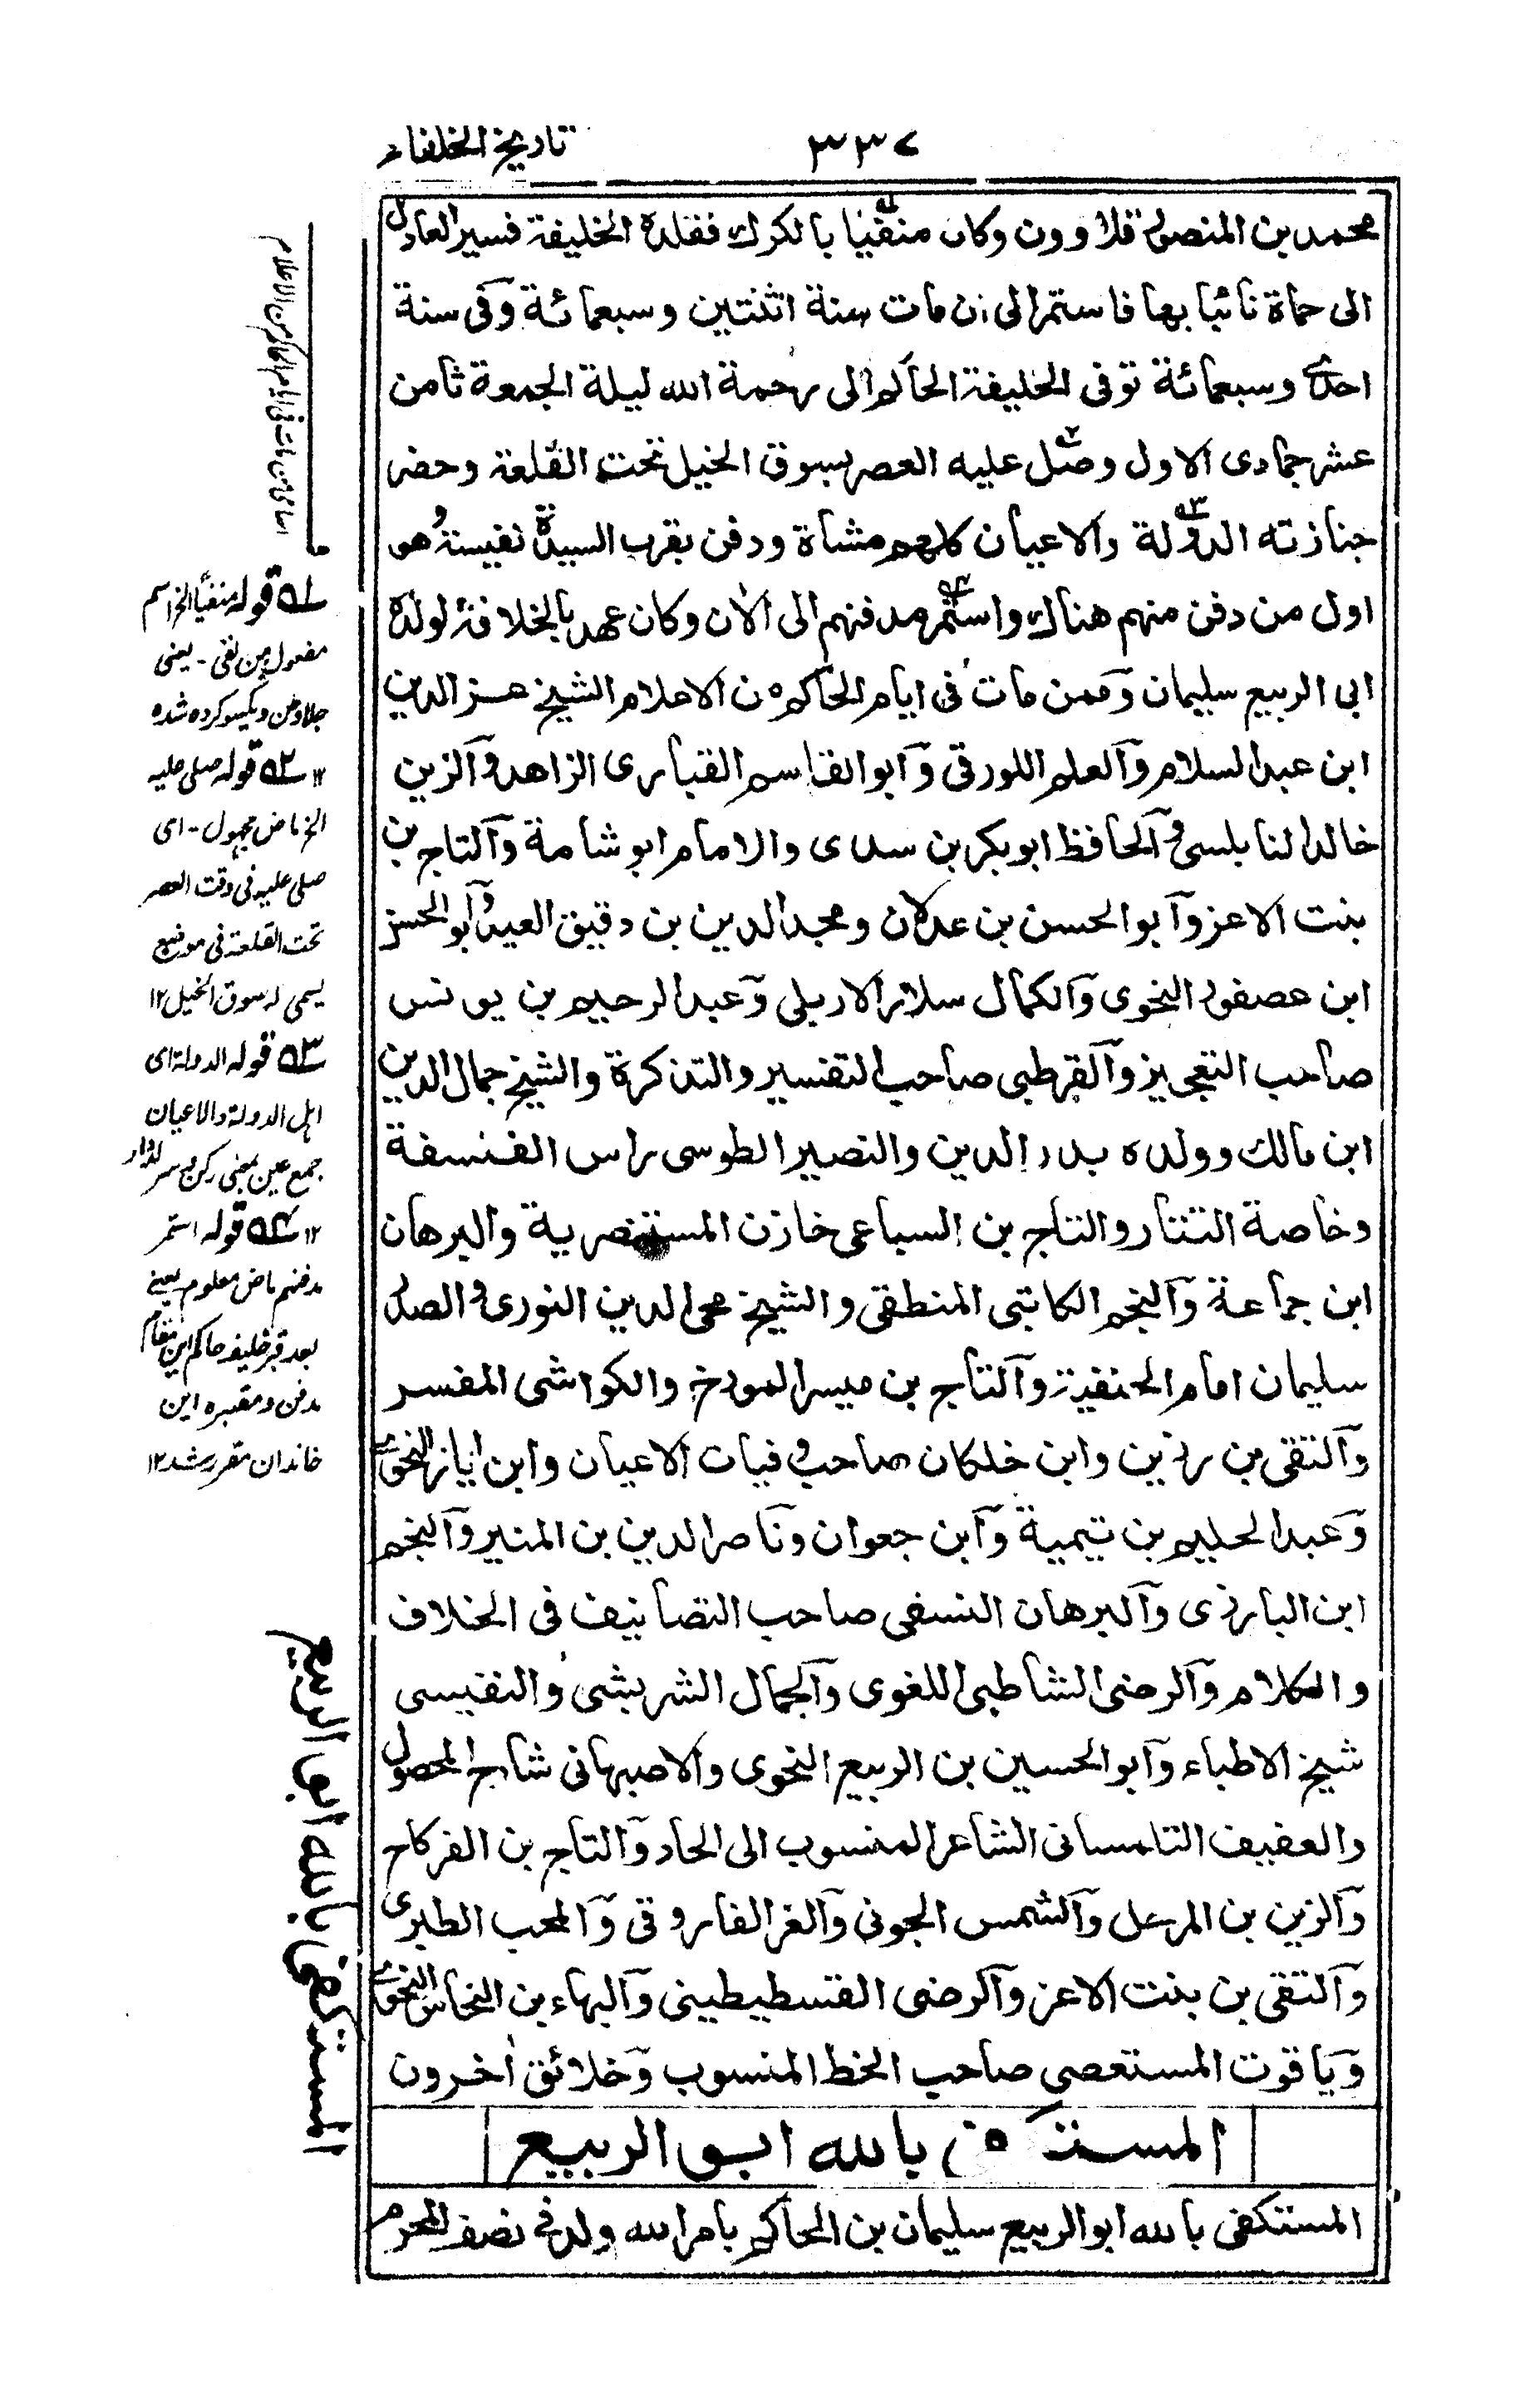 ٣٣٧
تاريخ الخلفاء
محمد بن المنصور قلاوون وكان منفيا بالكرك فقلده الخليفة فسير العادل
الى حماة نائبا بها فاستمر الى ان مات سنة اثنتين وسبعمائة وفى سنة
احدى وسبعمائة توفى الخليفة الحاكم الى رحمة الله ليلة الجمعة ثامن
عشر جمادى الاول وصلى عليه العصر بسوق الخيل تحت القلعة وحضر
جنازته الدولة والاعيان كلهم مشاة ودفن بقرب السيدة نفيسة وهو
اول من دفن منهم هناك واستمر مدفنهم الى الآن وكان عهد بالخلافة لولده
ابى الربيع سليمان وممن مات فى ايام الحاكم من الاعلام الشيخ عز الدين
ابن عبد السلام والعلم اللورقى وابو القاسم القبارى الزاهد والزين
خالد النابلسى والحافظ ابو بكر بن سدى والامام ابو شامة والتاج بن
بنت الاعز وابو الحسن بن عدلان ومجد الدين بن دقيق العيد وابو الحسن
ابن عصفور النحوى والكمال سلار الاربلى وعبد الرحيم بن يونس
صاحب التعجيز والقرطبى صاحب التفسير والتذكرة والشيخ جمال الدين
ابن مالك وولده بدر الدين والنصير الطوسى راس الفلسفة
وخاصة التتار والتاج بن السباعى خازن المستنصرية والبرهان
ابن جماعة والنجم الكاتبى المنطقى والشيخ محى الدين النورى والصدر
سليمان امام الحنفية والتاج بن ميسر المورخ والكواشى المفسر
والتقى بن رزين وابن خلكان صاحب وفيات الاعيان وابن اياز النحوى
وعبد الحليم بن تيمية وابن جعوان وناصر الدين بن المنير والنجم
ابن البارزى والبرهان النسفى صاحب التصانيف فى الخلاف
والكلام والرضى الشاطبى اللغوى والجمال الشريشى والنفيسى
شيخ الاطباء وابو الحسين بن الربيع النحوى والاصبهانى شارح المحصول
والعفيف التلمسانى الشاعر المنسوب الى الحاد والتاج بن الفركاح
والزين بن المرحل والشمس الجونى والغز الفاروقى والمحب الطبرى
والتقى بن بنت الاعز والرضى القسطيطينى والبهاء بن النحاس النحوى
وياقوت المستعصى صاحب الخط المنسوب وخلائق اخرون
المستكفى بالله ابو الربيع
المستكفى بالله ابو الربيع سليمان بن الحاكم بامر الله ولد فى نصف المحرم
اسامى من مات فى ايام الحاكم من الاعلام
لـه١ قوله منفيا الخ اسم
مفعول من نفى - يعنى
جلاوطن ويكسو كرده شده
١٢ لـه٢ قوله صلى عليه
الخ ماض مجهول - اى
صلى عليه فى وقت العصر
تحت القلعة فى موضع
يسمى له سوق الخيل ١٢
لـه٣ قوله الدولة اى
اهل الدولة والاعيان
جمع عين بمعنى ركن وسردار
١٢ لـه٤ قوله استمر
مدفنهم ماض معلوم يعنى
بعد قبر خليفه حاكم اين مقام
مدفن ومقبره اين
خاندان مقرر شد ١٢
المستكفى بالله ابو الربيع